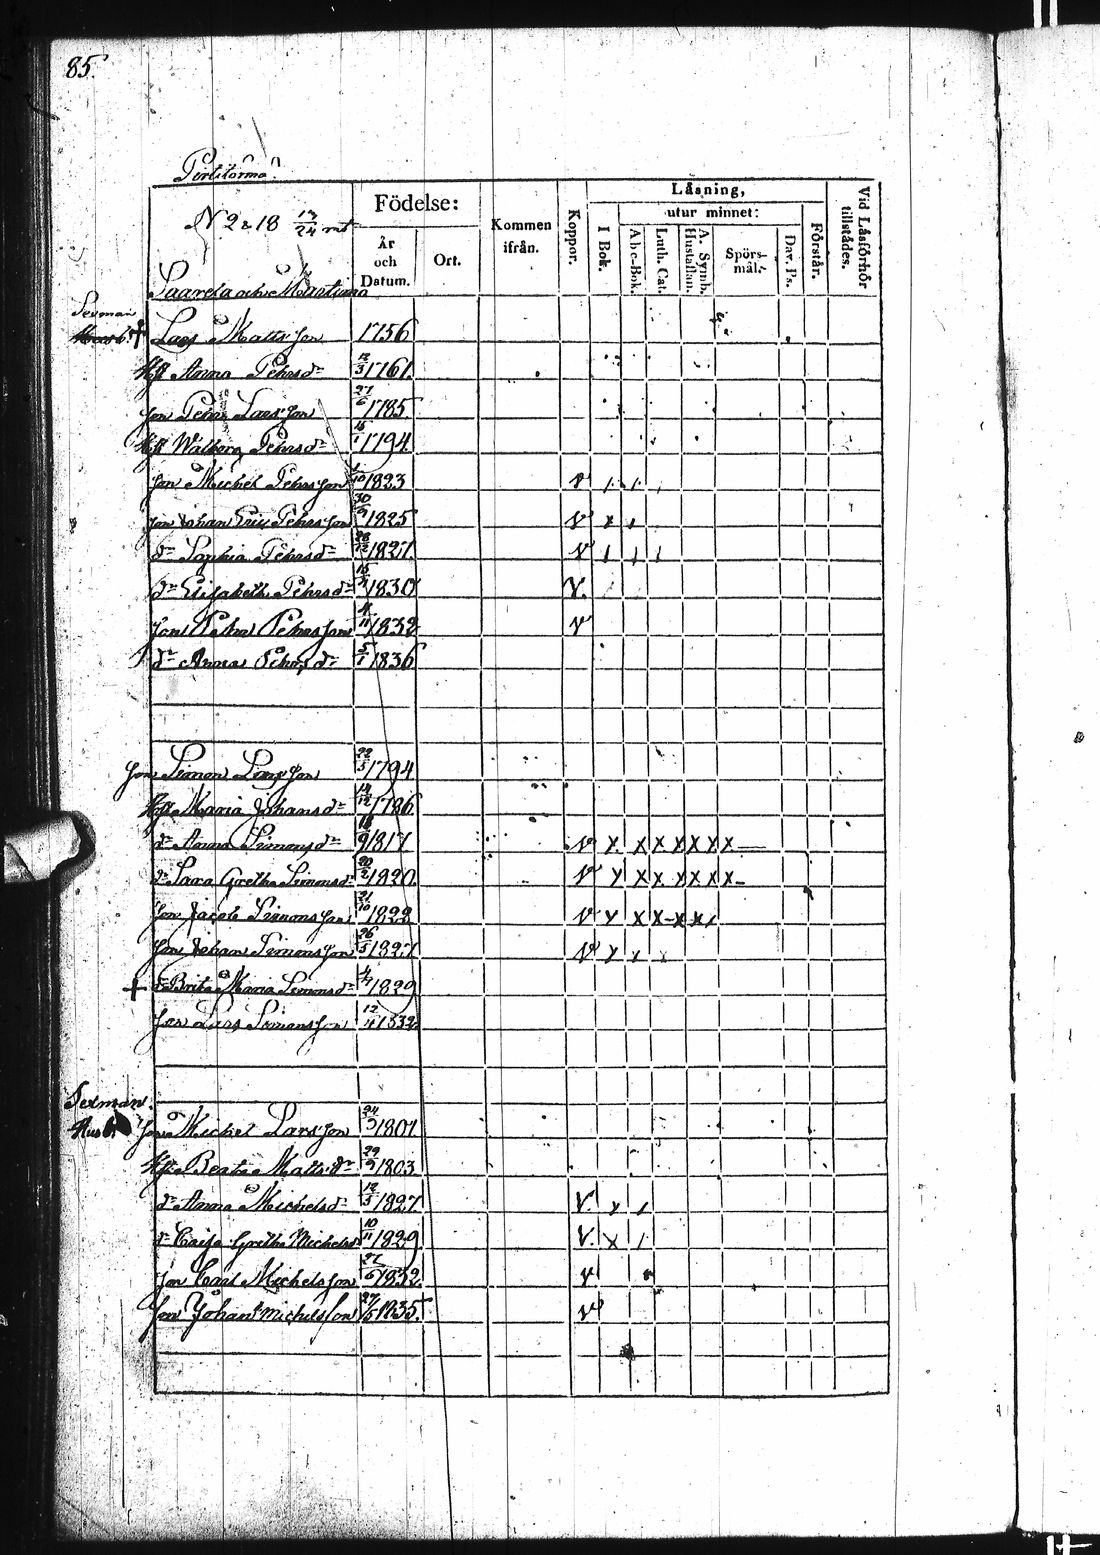 85.
N 2 & 18 13/24 mtl
Födelse:
År och Datum.
Ort.
Kommen ifrån.
Koppor.
Läsning,
I Bok.
utur minnet:
Abc-Bok.
Luth. Cat.
A. Symb. Hustaflan.
Spörs-mål.
Dav. Ps.
Förstår.
Vid Läsförhör tillstädes.
Saarela och Marti
Sexman
+ Lars Matts son 1756
Hu Anna Pehrsdr 12/3 1761.
son Pehr Larsson 27/6 1785
Hu Walborg Pehrsdr 16/1 1794
son Michel Pehrsson 1/10 1823 v
son Johan Eric Pehrsson 30/9 1825 v x
dr Sophia Pehrsdr 28/12 1827 v
dr Elisabeth Pehrsdr 1830 V.
son Pehr Pehrsson /11 1832 v
dr Anna Pehrsdr 5/1 1836
son Simon Larsson 22/5 1794
Hu Maria Johansdr 14/12 1786
dr Anna Simonsdr 18/9 1817 v x x x x x x x
dr Sara Gretha Simonsdr 20/2 1820 v x x x x x x x
son Jacob Simonsson 21/10 1822 v x x x x x
son Johan Simonsson 26/5 1827 v x
+ dr Brita Maria Simonsdr 4/4 1829
son Lars Simonsson 12/4 1832
Sexman
Husb. son Michel Larsson 24/5 1801
Hu Beata Mattsdr 29/9 1803
dr Anna Michelsdr 12/3 1827 V x
dr Caisa Gretha Michelsdr 10/11 1829 V. x
son Carl Michelsson 27/6 1832. v
son Johan Michelsson 27/5 1835. v